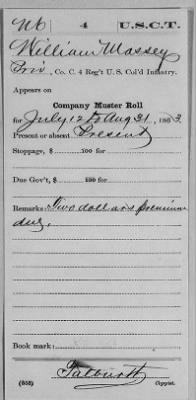 M | 4 | U.S.C.T.
William Massey
Pri, Co. C. 4 Reg't U. S. Col'd Infantry.
Appears on
Company Muster Roll
for July 12 to Aug 31, 1863
Present or absent Present
Stoppage, $ 100 for
Due Gov't, $ 100 for
Remarks: Two dollars premium
due,
Book mark:
(858) Copyist.